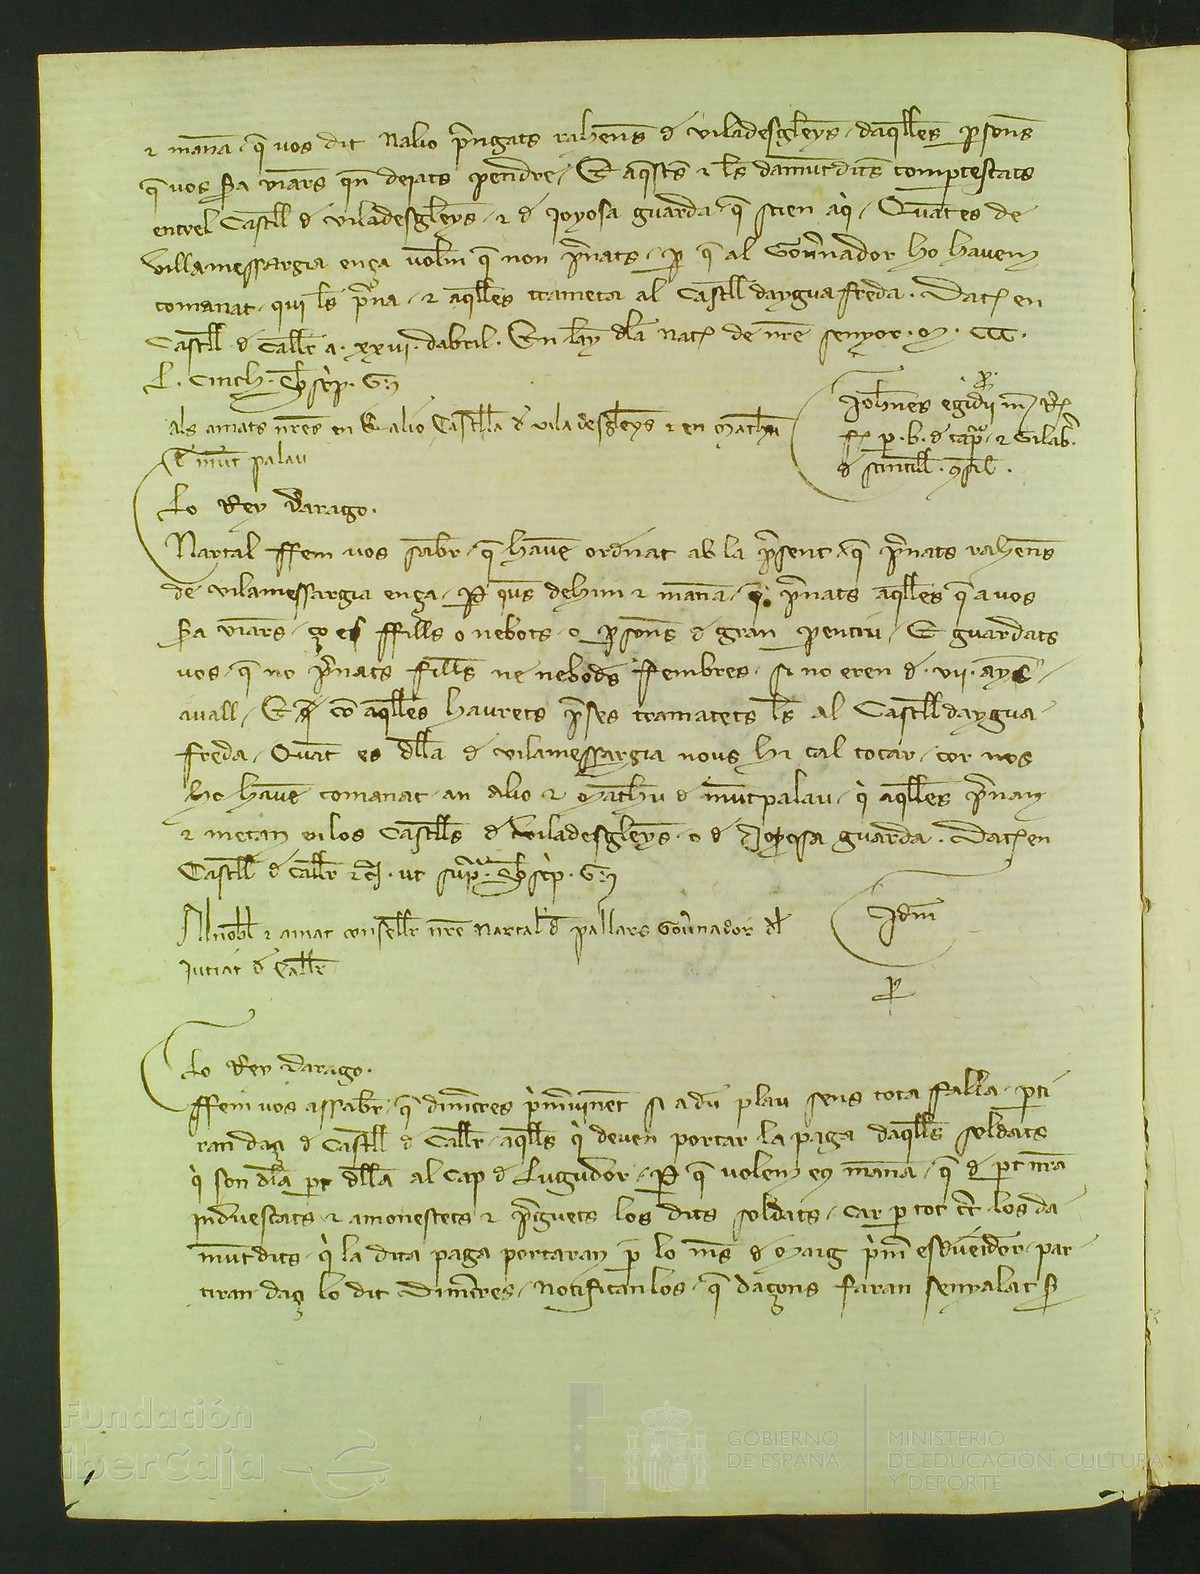 ⁊ mana · q̄ vos dit Nalio p̄ngats rahens d̄ viladesgleys · daqlls p̄sons
q̄ vos s̄a viars qn deiats pendre · E aq̄sts ⁊ ls damūtdits comptestats
entrel Castll d̄ viladesgleys · ⁊ d̄ Joyosa guarda · q̄ stien aq̇ · Quāt es de
villamessargia ença volē q̄ non p̄nats · p̄ q̄ al Gov̄nador ho havem
comanat · qui ls p̄na · ⁊ aqlls trameta al Castll dayguafreda · Dat̄ en
Castll d̄ Callr̄ a · xxvi · dabril · En lay dla nat̄ de nr̄e senyor · M · CCC ·
L · Cinch · Sb̄scp̄ · G
Als amats nr̄es en alio Castllā d̄ viladesgleys ⁊ en Matheu
d̄ mūt palau
Joh̄nes egidii
d̄ p · b · d̄ cap̄ · ⁊ Gilab̄
d̄ scintill · 9sil ·
Lo Rey darago ·
Nartal ffem vos sabr̄ · q̄ havē ordnat ab la p̄sent · q̄ p̄nats rahens
de vilamessargia ença · P̄ qūs dehim ⁊ manā · q̄ p̄nats aqlls q̄ a vos
s̄a viars · ço es ffills o nebots · o p̄sons d̄ gran pentiu · E guardats
vos · q̄ no p̄nats fills ne nebods fembres · si no eren d̄ · vii · ays ·
avall · E cō aqlls haurets p̄ses trametets ls al Castll daygua
freda · Quāt es dlla d̄ vilamessargia nous hi cal tocar · cor nos
ho havē comanat · an alio ⁊ Matheu d̄ mūtpalau · q̇ aqlls p̄nam
⁊ metan en los Castlls d̄ viladesgleys · o d̄ Joyosa guarda · Dat̄ en
Castll d̄ Callr̄ ⁊c̄ · ut sup̄ · Sb̄scp̄ · G
Al nobl ⁊ amat cunsellr̄ nr̄e Nartal d̄ pallars Gov̄nador dl
Jutiat d̄ Callr̄
Idm̄
p̄
Lo Rey darago ·
ffem vos assabr̄ · q̄ dimēcres ṗmvinēt si a du plau sens tota falla · p̄ti
ran daç d̄ Castll d̄ Callr̄ · aqlls q̇ deven portar la paga daqlls soldats
q̇ son dlā p̄t dllā al Cap d̄ Lugudor · P̄ q̄ volem manā · q̄ d̄ p̄t nr̄a
indvestats ⁊ amonestets ⁊ p̄iguets los dits soldats · car p tot c̄t los da
mūtdits · q̇ la dita paga portaran p̄ lo mēs d̄ Maig ṗm esdvenidor · par
tiran daç lo dit dimēcres · Notificanlos · q̄ daçons faran senyalat s̄
Fundación
iberCaja
GOBIERNO
DE ESPAÑA
MINISTERIO
DE EDUCACIÓN, CULTURA
Y DEPORTE